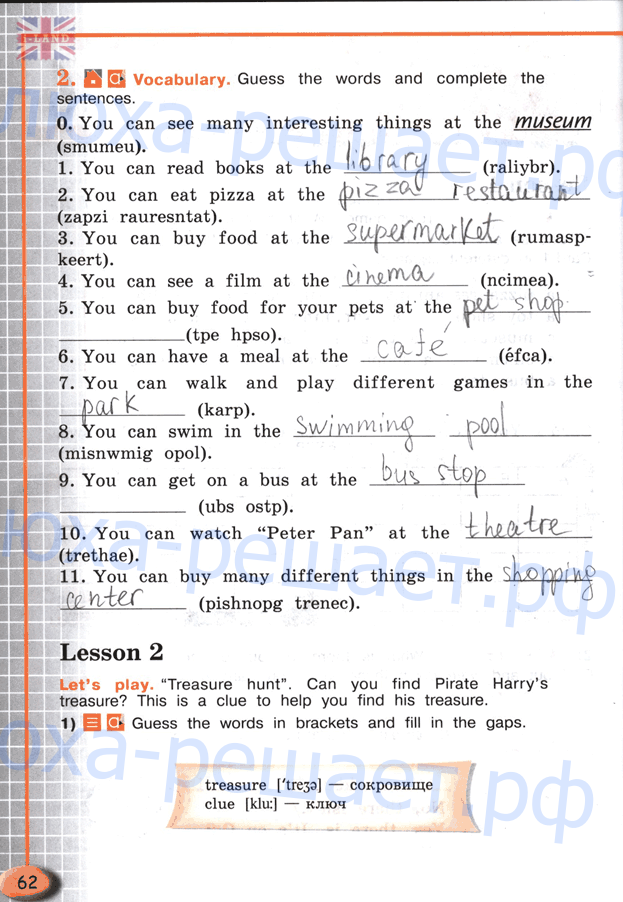 I-LAND
2. Vocabulary. Guess the words and complete the
sentences.
0. You can see many interesting things at the museum
(smumeu).
1. You can read books at the library (raliybr).
2. You can eat pizza at the pizza restaurant
(zapzi rauresntat).
3. You can buy food at the supermarket (rumasp-
keert).
4. You can see a film at the cinema (ncimea).
5. You can buy food for your pets at the pet shop
(tpe hpso).
6. You can have a meal at the café (éfca).
7. You can walk and play different games in the
park (karp).
8. You can swim in the swimming pool
(misnwmig opol).
9. You can get on a bus at the bus stop
(ubs ostp).
10. You can watch “Peter Pan” at the theatre
(trethae).
11. You can buy many different things in the shopping
center (pishnopg trenec).
Lesson 2
Let’s play. “Treasure hunt”. Can you find Pirate Harry’s
treasure? This is a clue to help you find his treasure.
1) Guess the words in brackets and fill in the gaps.
treasure [ˈtreʒə] — сокровище
clue [kluː] — ключ
62
люха-решает.рф
люха-решает.рф
люха-решает.рф